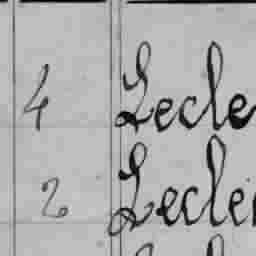 4 Lecle
2 Lecle